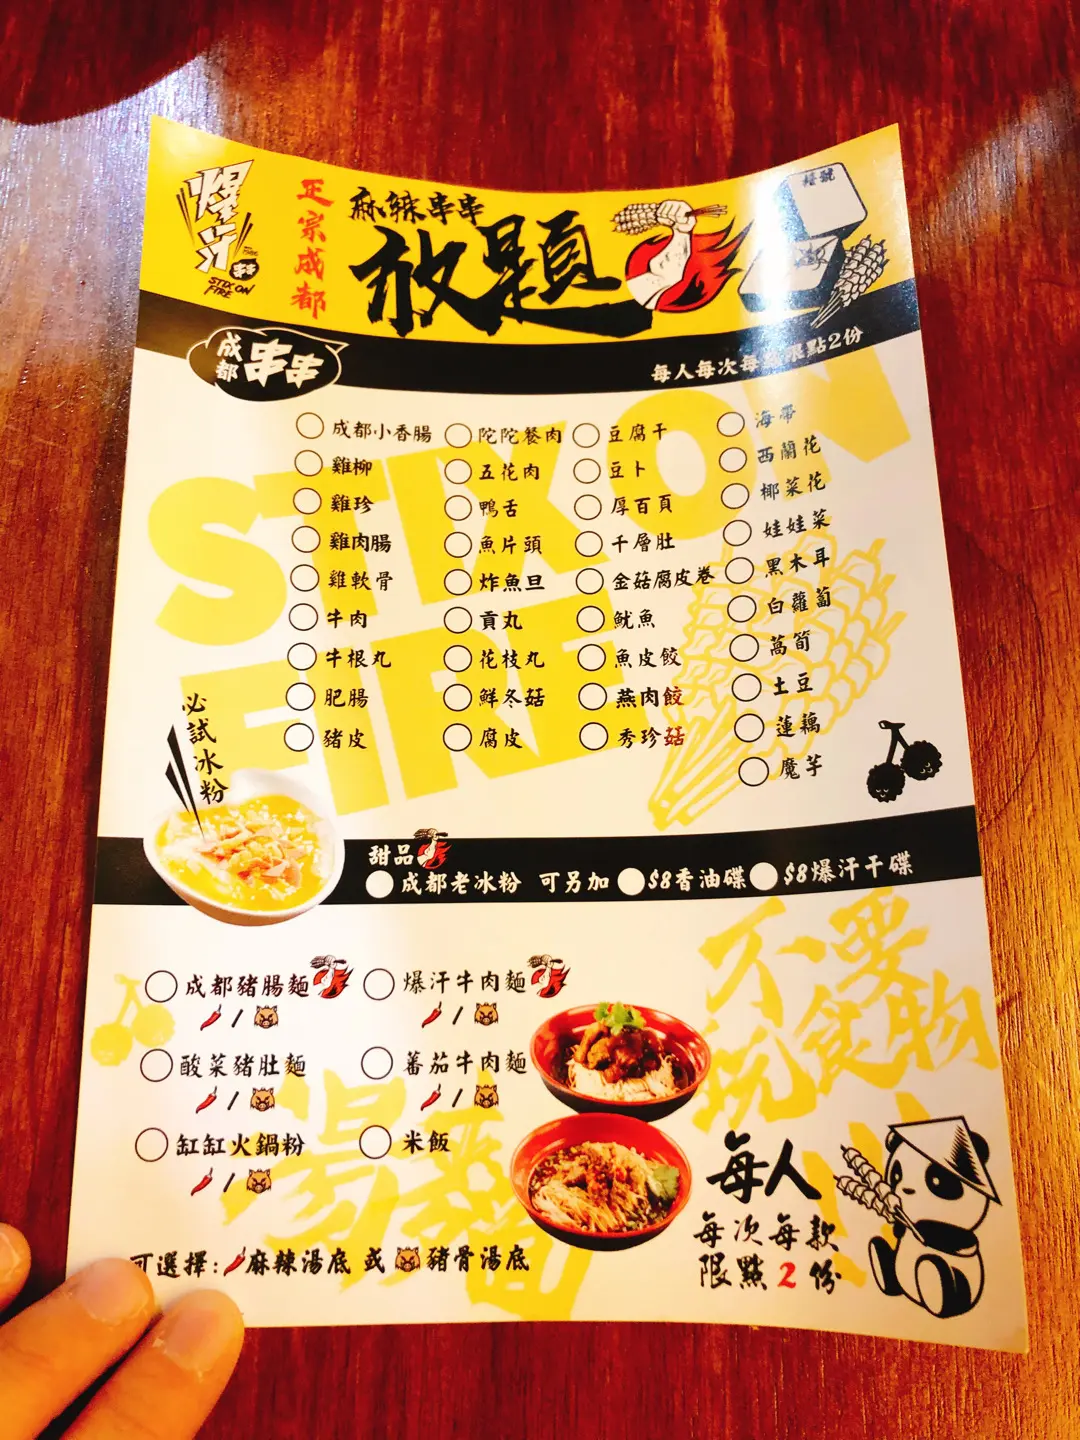 爆汗
串串
STIX ON
FIRE
正宗成都
麻辣串串
放題
檯號
成都
串串
每人每次每款限點2份
STIX ON
FIRE
成都小香腸
雞柳
雞珍
雞肉腸
雞軟骨
牛肉
牛根丸
肥腸
豬皮
陀陀餐肉
五花肉
鴨舌
魚片頭
炸魚旦
貢丸
花枝丸
鮮冬菇
腐皮
豆腐干
豆卜
厚百頁
千層肚
金菇腐皮卷
魷魚
魚皮餃
燕肉餃
秀珍菇
海帶
西蘭花
椰菜花
娃娃菜
黑木耳
白蘿蔔
萵筍
土豆
蓮藕
魔芋
必試冰粉
甜品
成都老冰粉 可另加 $8香油碟 $8爆汗干碟
成都豬腸麵
/
爆汗牛肉麵
/
酸菜豬肚麵
/
蕃茄牛肉麵
/
缸缸火鍋粉
/
米飯
湯麵
不要
玩食物
每人
每次每款
限點2份
可選擇:麻辣湯底 或 豬骨湯底